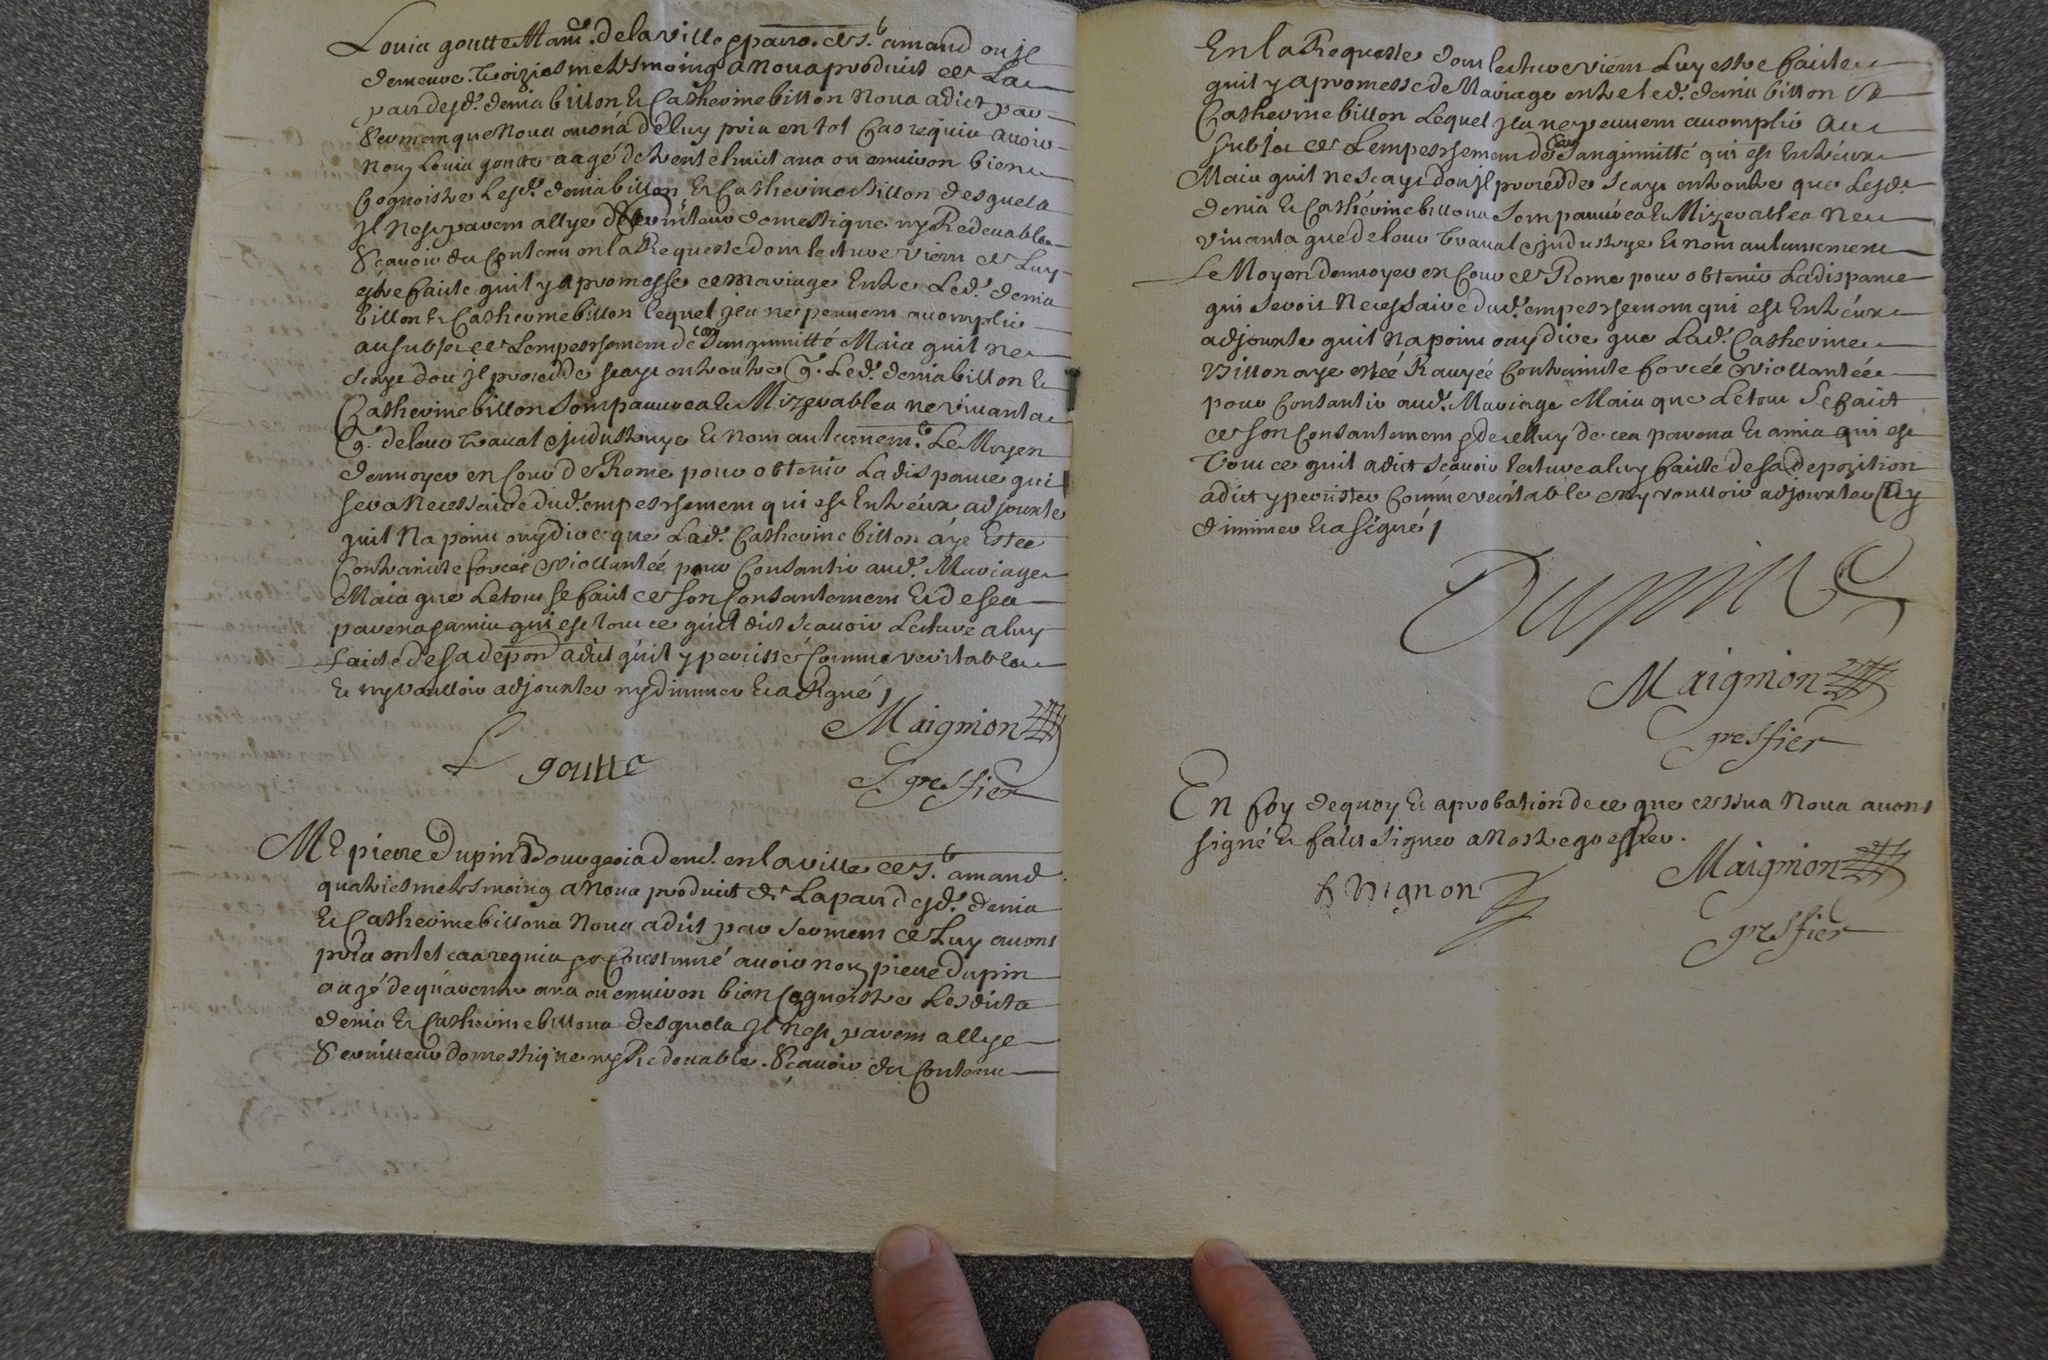 Louis goutte Mand. de la ville & parr. de St. amand ou il
demeure. troizies me tesmoing a Nous produict de La
part desd. denis billon & Catherine billon Nous a dict par
Serment que Nous avons de luy pris en tel Cas requis avoir
Nom Louis goutte aagé de trente huict ans ou environ bien
Cognoistre Lesd. denis billon & Catherine Billon desquels
Il nest parent allyé serviteur domestique ny Redevable
Scavoir du Contenu en la Requeste dont lecture vient de Luy
estre faicte quil y a promesse de mariage Entre Led. denis
billon & Catherine billon lequel ils ne peuvent accomplir
au subjet de Lempeschement de Consanguinitté Mais quil ne
scayt dou il procedde scayt en toutre q. Led. denis billon &
Catherine billon Sont pauvres & Mizerables ne vivants
q. de leur travail & industrye & nont aulcunemt. Le Moyen
denvoyer en Cour de Rome pour obtenir La dispance qui
sera Necessaire dud. empeschement qui est Entreux adjouxte
quil Na point ouy dire que Lad. Catherine billon aye Estee
Contrainte forcée & viollantée pour Consantir aud. Mariage
Mais que Le tout se faict de son Consantement & de ses
parens & amis qui est tout ce quil dict scavoir Lecture a luy
faicte de sa depon a dict quil y persiste Comme veritable
& ny voulloir adjouxter ny diminuer & a signé /
Maignion
L goutte
greffier
Me pierre Dupin Bourgeois demt. en la ville de St. amand
quatriesme tesmoing a Nous produict de La part desd. denis
& Catherine billons Nous a dict par serment de Luy avons
pris en tel cas requis & Coustumé avoir nom pierre Dupin
aagé de quarente ans ou environ bien Cognoistre Lesdicts
denis & Catherine billons desquels Il nest parent allyé
Serviteur domestique ny Redevable. Scavoir du Contenu
En la Requeste dont lecture vient Luy estre faicte
quil y a promesse de Mariage entre led. denis billon &
Catherine billon Lequel ils ne peuvent accomplir au
subjet de Lempeschement de Consanginitté qui est Entreux
Mais quil ne scayt dou Il procedde scayt entoutre que Lesd.
denis & Catherine billons sont pauvres & Mizerables ne
vivants que de leur travail & industrye & nont aulcunement
Le Moyen denvoyer en Cour de Rome pour obtenir La dispance
qui seroit Necessaire dud. empeschement qui est Entreux
adjouxte quil Na point ouy dire que Lad. Catherine
Billon aye estée Ravyée Contrainte forcée & viollantée
pour Consantir aud. Mariage Mais que Le tout se faict
de son Consantement & de celluy de ces parens & amis qui est
tout ce quil a dict scavoir lecture a luy faicte de sa depozition
a dict y persister Comme veritable & ny voulloir adjouxter Ny
diminuer & a signé /
Dupin
Maignion
greffier
En foy de quoy & aprobation de ce que dessus Nous avons
signé & faict signer a Nostre greffier.
Maignion
Vignon
greffier